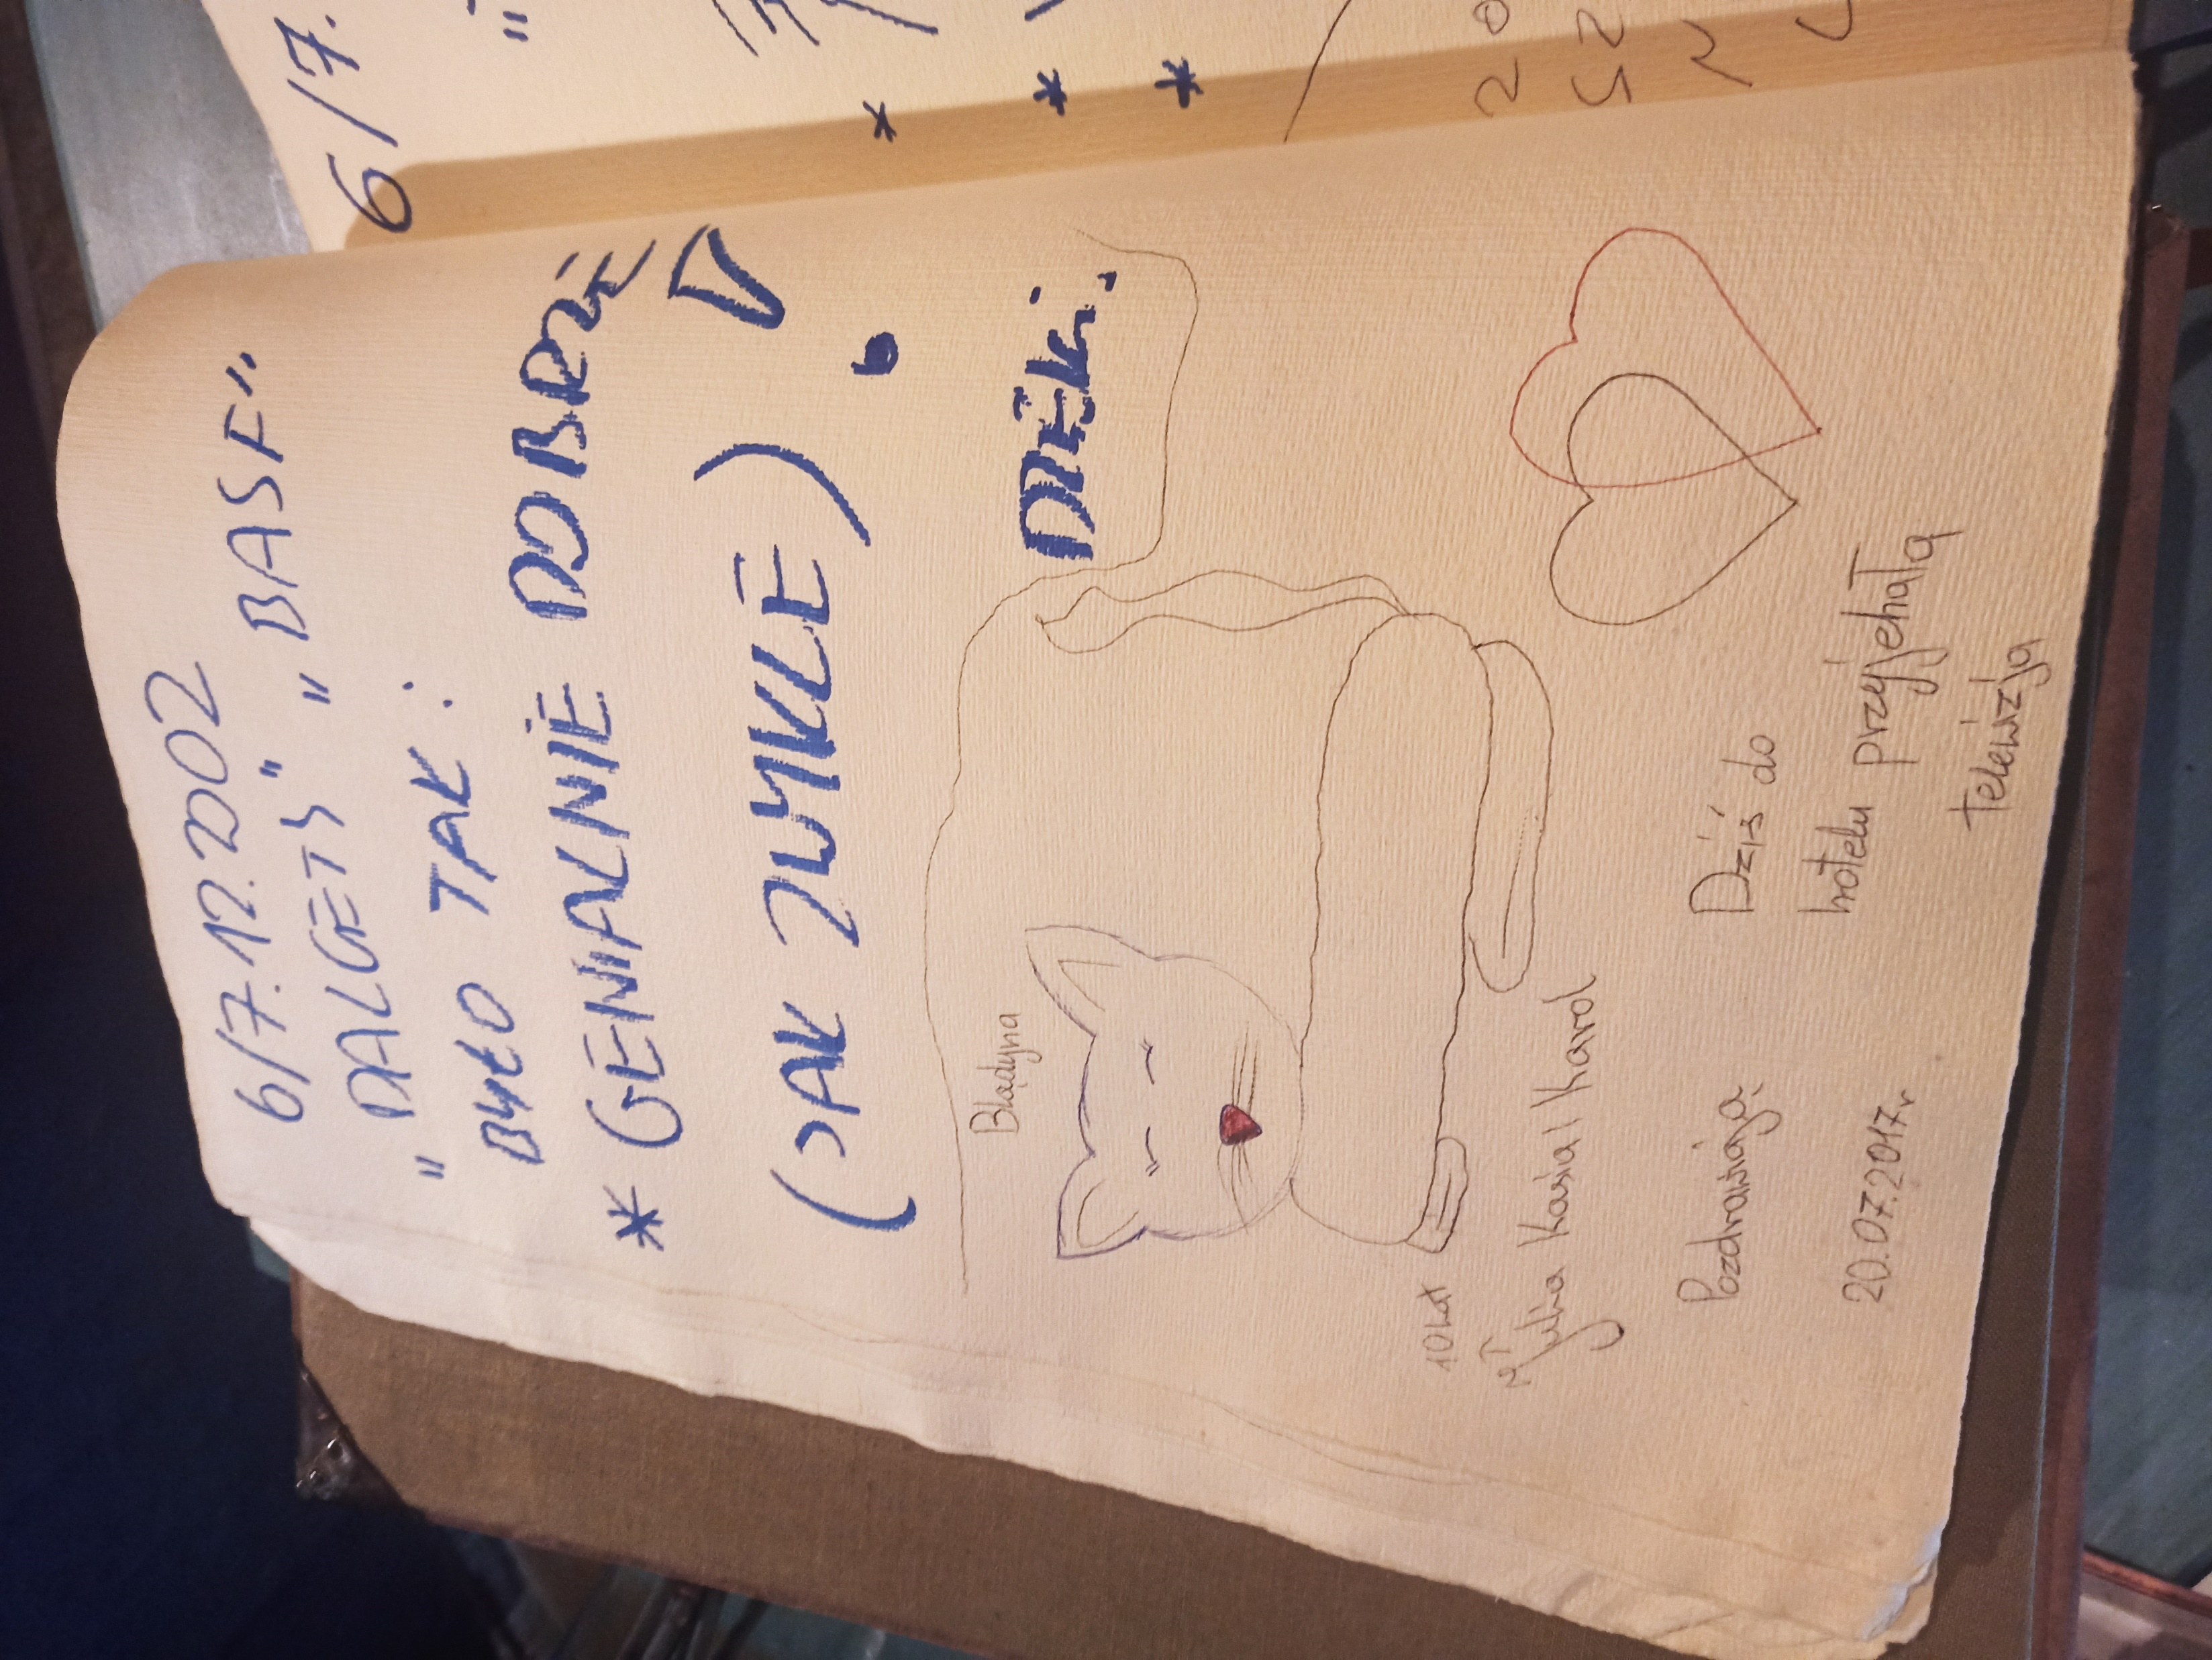 6/7.12.2002
"DALGETY" "BASF"
BYŁO TAK:
* GENIALNIE DOBRZE
(JAK ZWYKLE)!
DZIĘKI.
Blądyna
10 lat
Julka Kasia i Karol
Pozdrawiają
Dziś do
hotelu przyjehałą
telewizja
20.07.2017r
6/7.
*
*
*